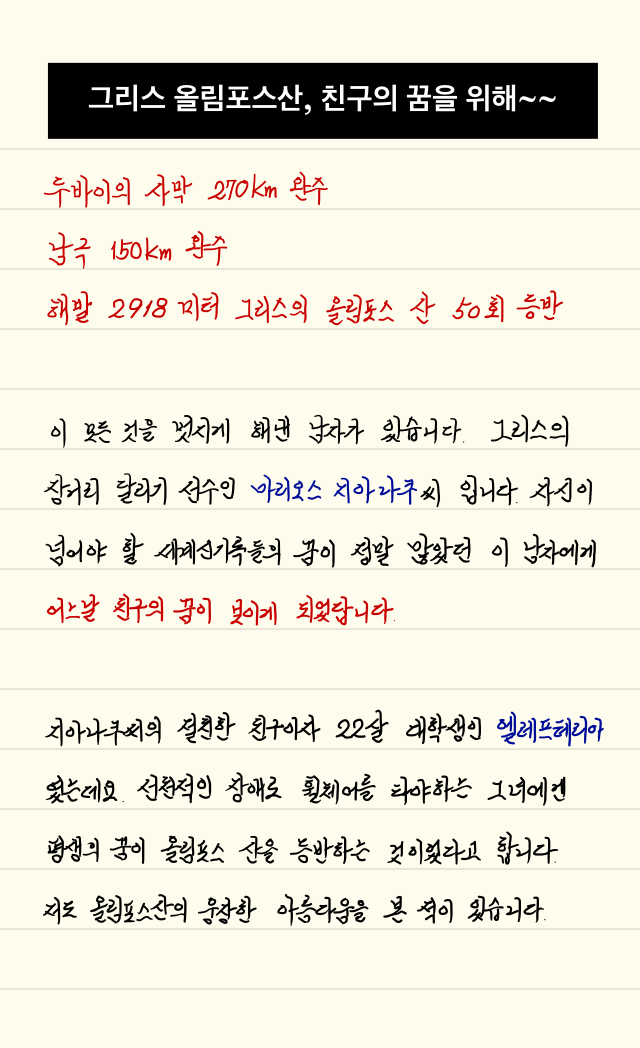 그리스 올림포스산, 친구의 꿈을 위해~~
두바이의 사막 270km 완주
남극 150km 완주
해발 2918 미터 그리스의 올림포스 산 50회 등반
이 모든 것을 멋지게 해낸 남자가 있습니다. 그리스의
장거리 달리기 선수인 마리오스 지아나쿠씨 입니다. 자신이
넘어야 할 세계신기록들의 꿈이 정말 많았던 이 남자에게
어느날 친구의 꿈이 보이게 되었답니다.
지아나쿠씨의 절친한 친구이자 22살 대학생인 엘레프테리아
였는데요. 선천적인 장애로 휠체어를 타야하는 그녀에겐
평생의 꿈이 올림포스 산을 등반하는 것이었다고 합니다.
저도 올림포스산의 웅장한 아름다움을 본 적이 있습니다.